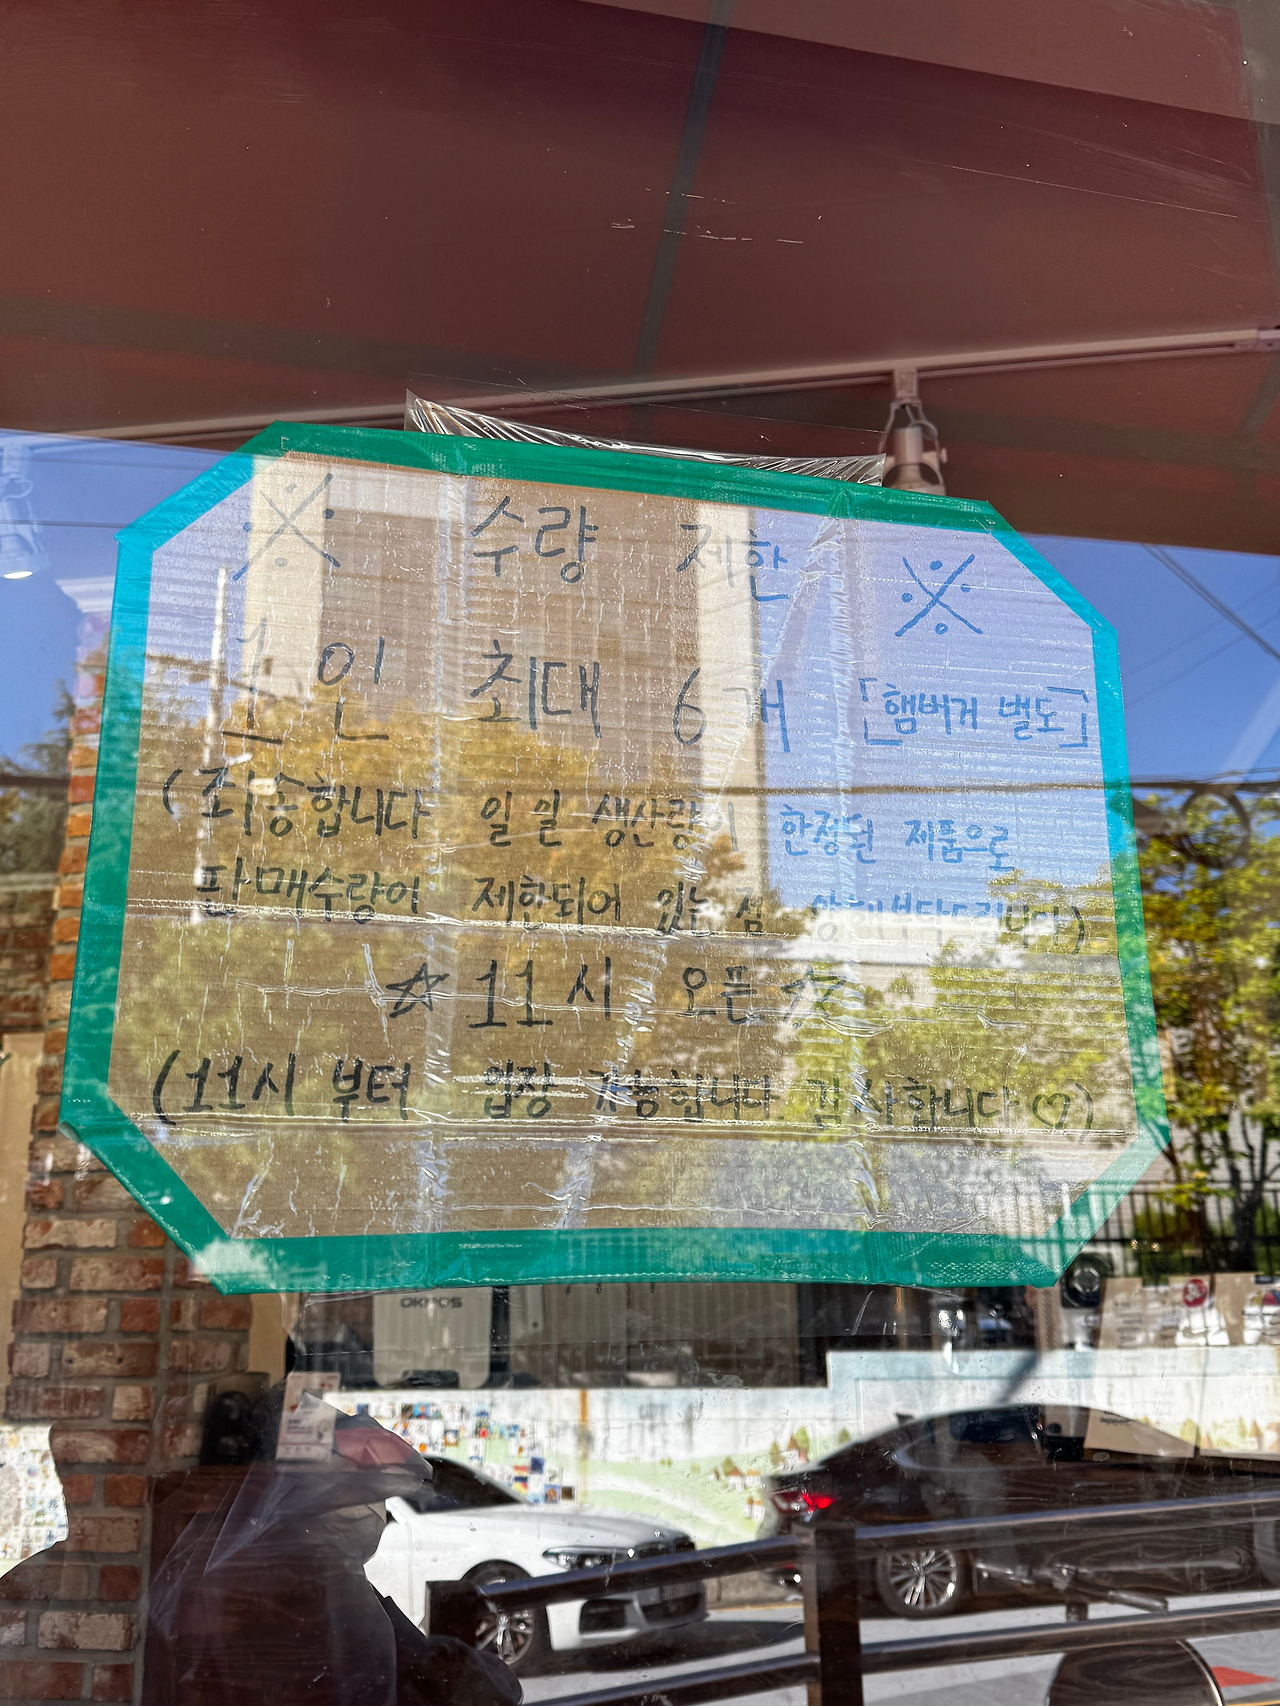 ※ 수량 제한 ※
1인 최대 6개 [햄버거 별도]
(죄송합니다 일일 생산량이 한정된 제품으로
판매수량이 제한되어 있는 점 양해부탁드립니다)
☆ 11시 오픈 ☆
(11시 부터 입장 가능합니다 감사합니다♡)
OKPOS